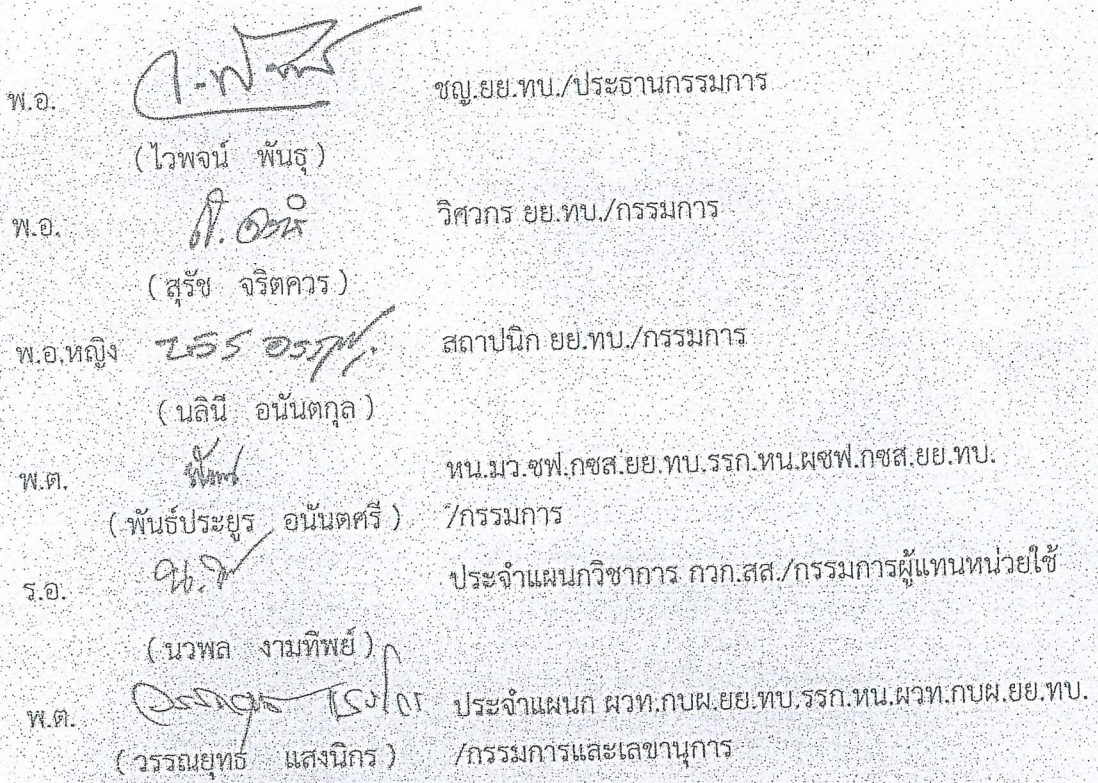 พ.อ. ชญ.ยย.ทบ./ประธานกรรมการ
( ไวพจน์ พันธุ )
พ.อ. วิศวกร ยย.ทบ./กรรมการ
( สุรัช จริตควร )
พ.อ.หญิง สถาปนิก ยย.ทบ./กรรมการ
( นลินี อนันตกุล )
พ.ต. หน.มว.ซฟ.กซส.ยย.ทบ.รรก.หน.ผซฟ.กซส.ยย.ทบ.
( พันธ์ประยูร อนันตศรี ) /กรรมการ
ร.อ. ประจำแผนกวิชาการ กวก.สส./กรรมการผู้แทนหน่วยใช้
( นวพล งามทิพย์ )
พ.ต. ประจำแผนก ผวท.กบผ.ยย.ทบ.รรก.หน.ผวท.กบผ.ยย.ทบ.
( วรรณยุทธ แสงนิกร ) /กรรมการและเลขานุการ